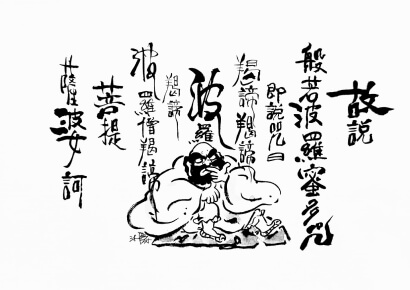 故説
般若波羅蜜多咒
即説咒曰
羯諦羯諦
波羅
羯諦
波羅僧羯諦
菩提
薩婆訶